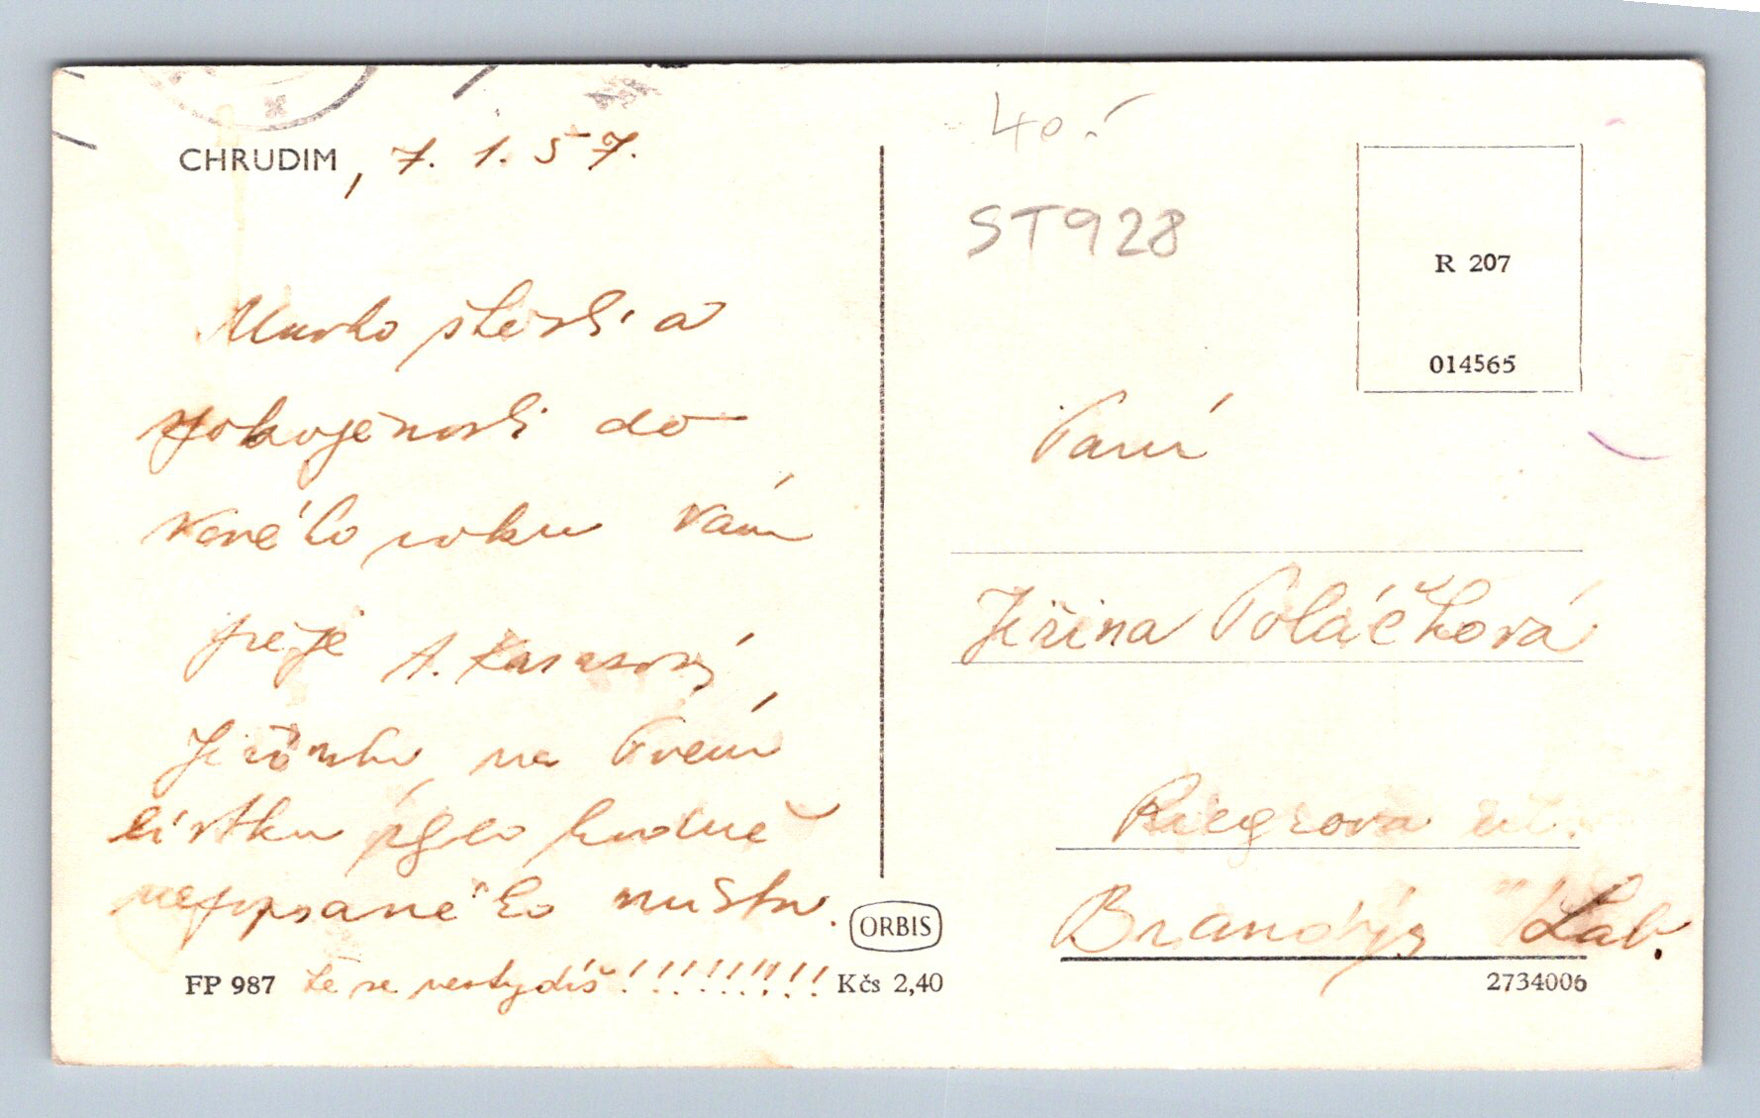 CHRUDIM, 7. 1. 57.
Mnoho štěstí a
spokojenosti do
Nového roku Vám
přeje A.
Jiřinko, na Tvém
lístku bylo hodně
nepopsaného místa.
Že se nestydíš!!!!!!!!!
FP 987
ORBIS
Kčs 2,40
40.-
ST928
R 207
014565
Paní
Jiřina Poláčková
Riegrova ul.
Brandýs n Lab.
2734006